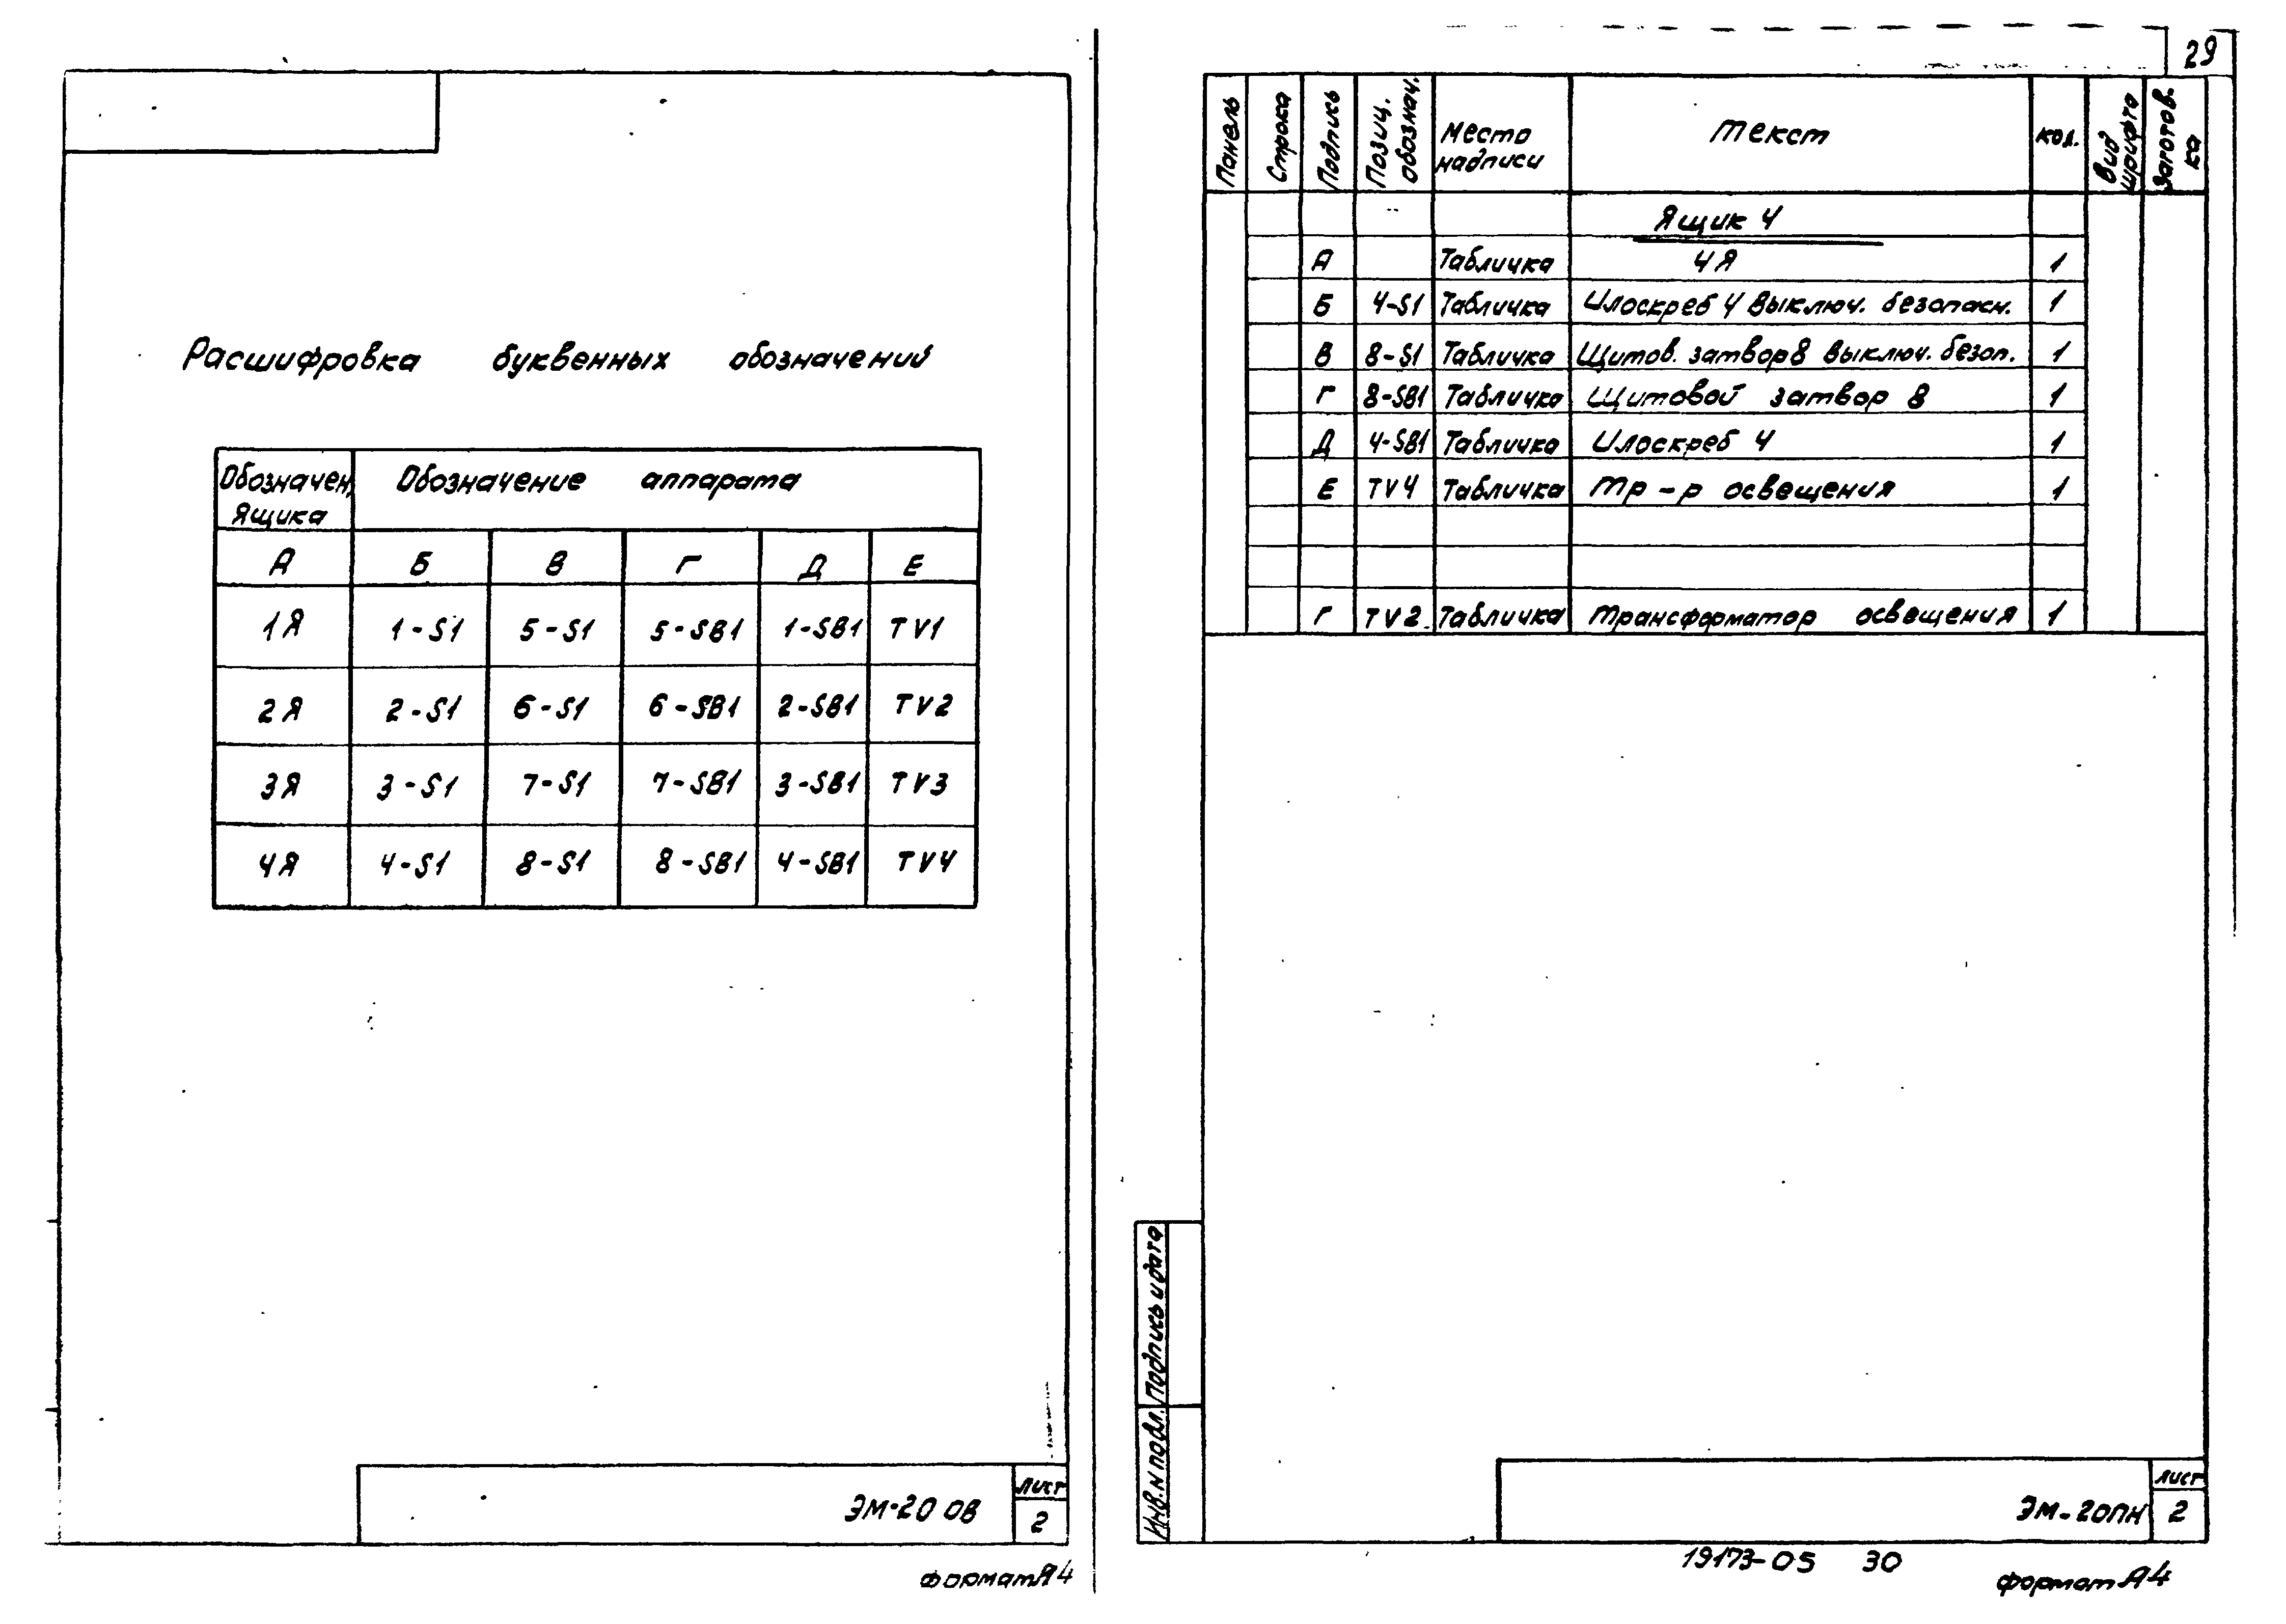 Расшифровка буквенных обозначений
Обозначен. Ящика Обозначение аппарата
А Б В Г Д Е
1Я 1-S1 5-S1 5-SB1 1-SB1 TV1
2Я 2-S1 6-S1 6-SB1 2-SB1 TV2
3Я 3-S1 7-S1 7-SB1 3-SB1 TV3
4Я 4-S1 8-S1 8-SB1 4-SB1 TV4
ЭМ-20 ОВ
Лист
2
формат А4
29
Панель Строка Подпись Позиц. обознач. Место надписи Текст кол. Вид шрифта Заготов. ка
Ящик 4
А Табличка 4Я 1
Б 4-S1 Табличка Илоскреб 4 выключ. безопасн. 1
В 8-S1 Табличка Щитов. затвор 8 выключ. безоп. 1
Г 8-SB1 Табличка Щитовой затвор 8 1
Д 4-SB1 Табличка Илоскреб 4 1
Е TV4 Табличка Тр-р освещения 1
Г TV2 Табличка Трансформатор освещения 1
Подпись и дата
Инв. N подл.
ЭМ-20ПН
Лист
2
19173-05 30
формат А4